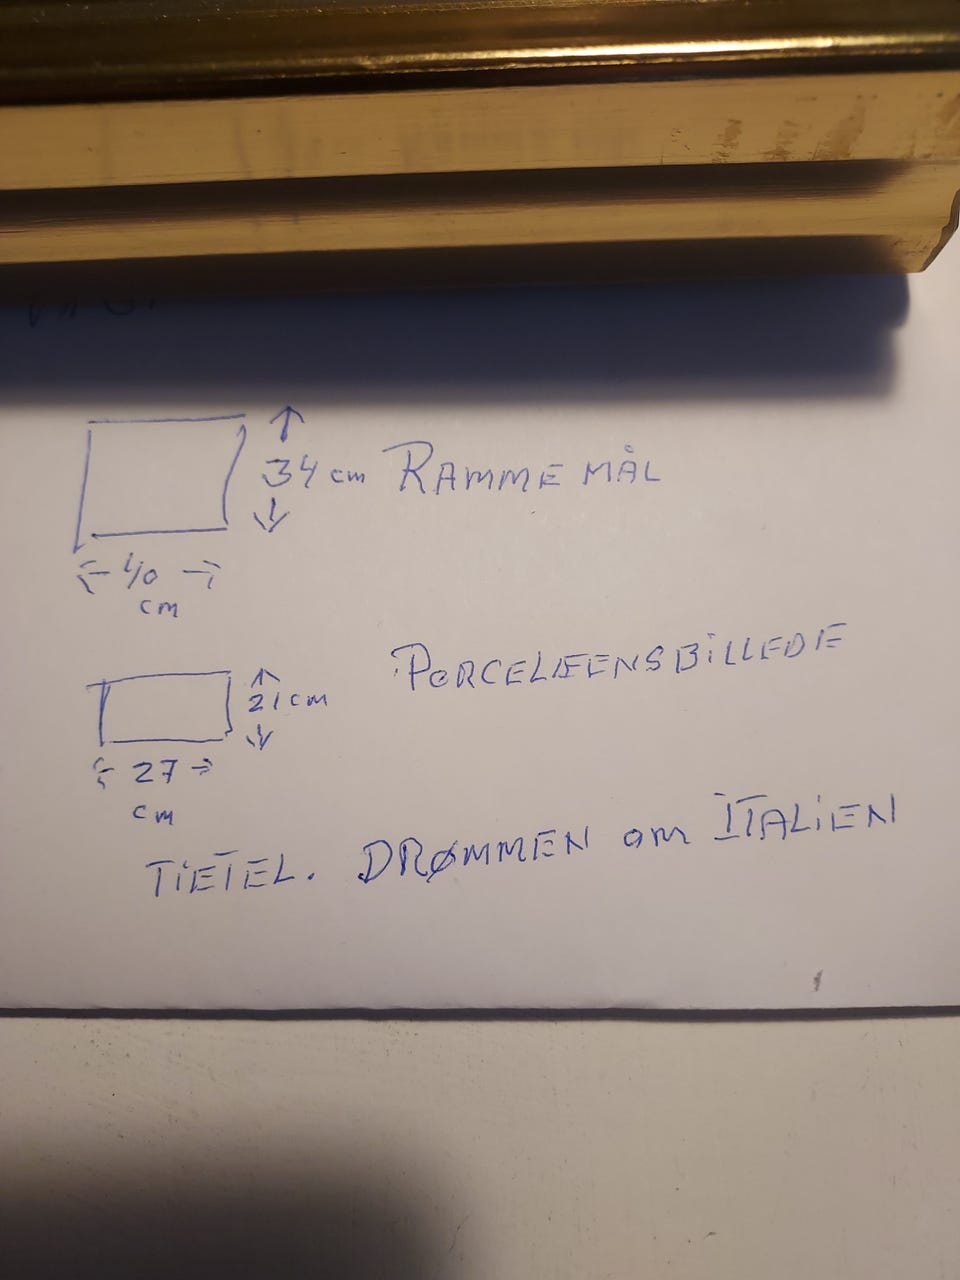 34 cm RAMME MÅL
40
cm
PORCELÆENSBILLEDE
21 cm
27
cm
TIETEL. DRØMMEN om ITALIEN